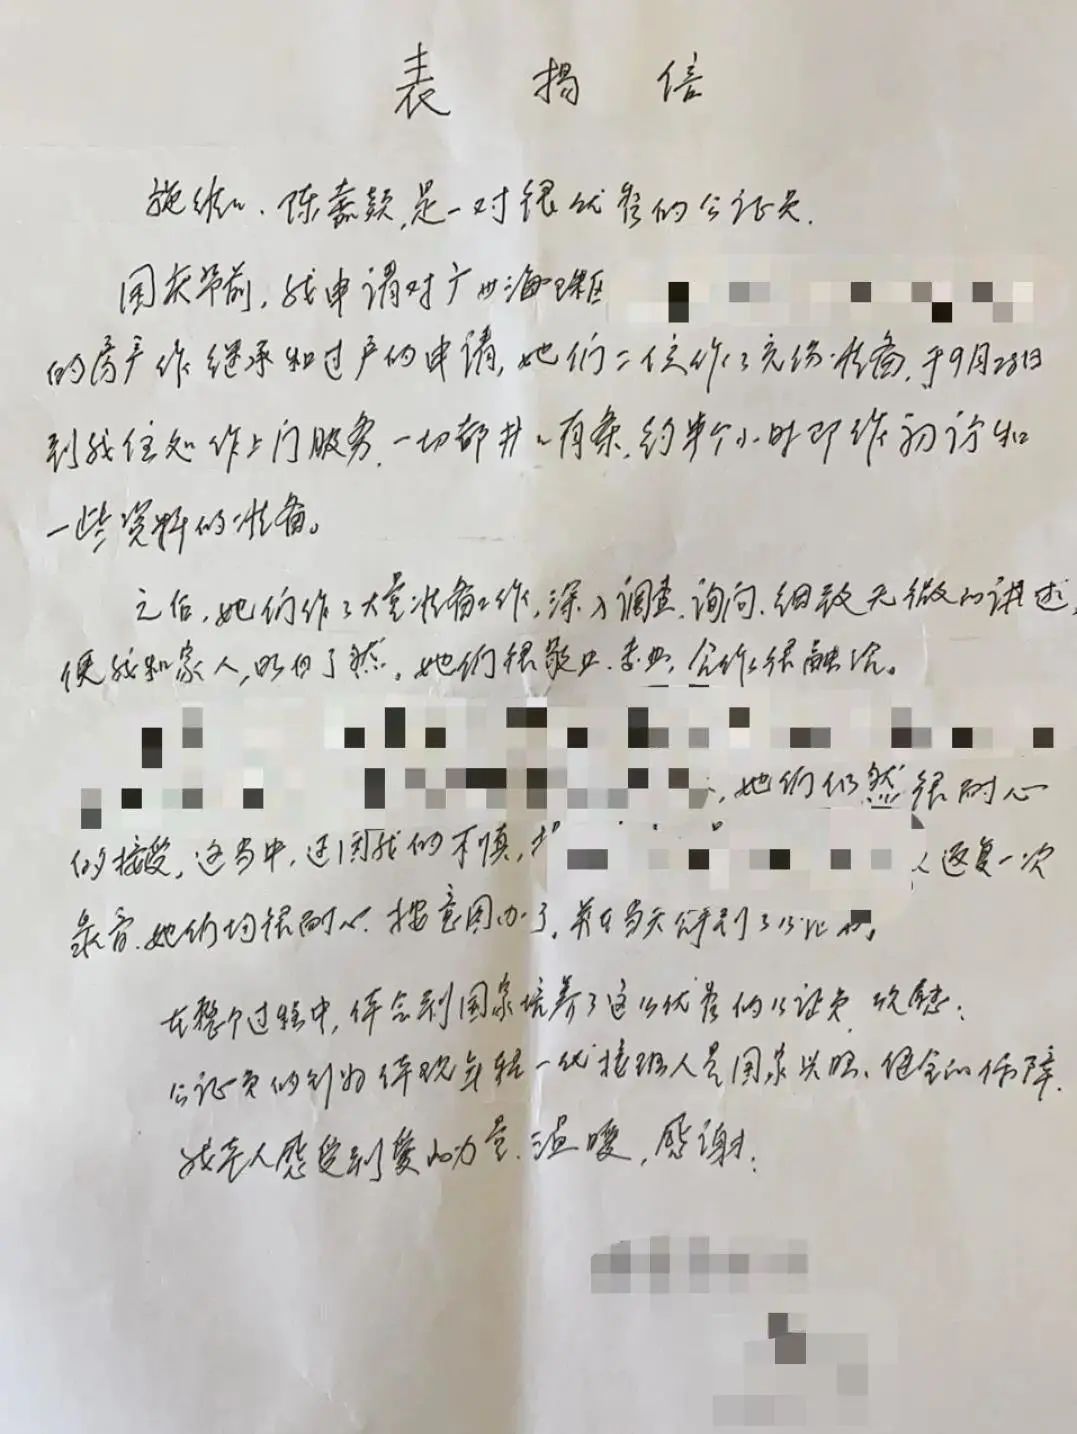 表揭信
陈嘉颖,是一对很优秀的公证员.
国庆节前,我申请对广州海珠区
的房产作继承和过户的申请,她们二位作了充份准备,于9月28日
到我住处作上门服务.一切都井〻有条,约半个小时即作初访和
一些资料的准备。
之后,她们作了大量准备工作,深入调查.询问.细致无微的讲述,
使我和家人,明白了然。她们很敬业.专业,合作很融洽。
,她们仍然很耐心
的接受,这当中,还因我的不慎,
返复一次
录音.她们均很耐心.按意图办了,并在当天
在整个过程中,体会到国家培养了这么优秀的公证员
公证员的 体现年轻一代接班人是国家兴旺、健全的保障.
我老人感受到爱的力量.温暖,感谢!